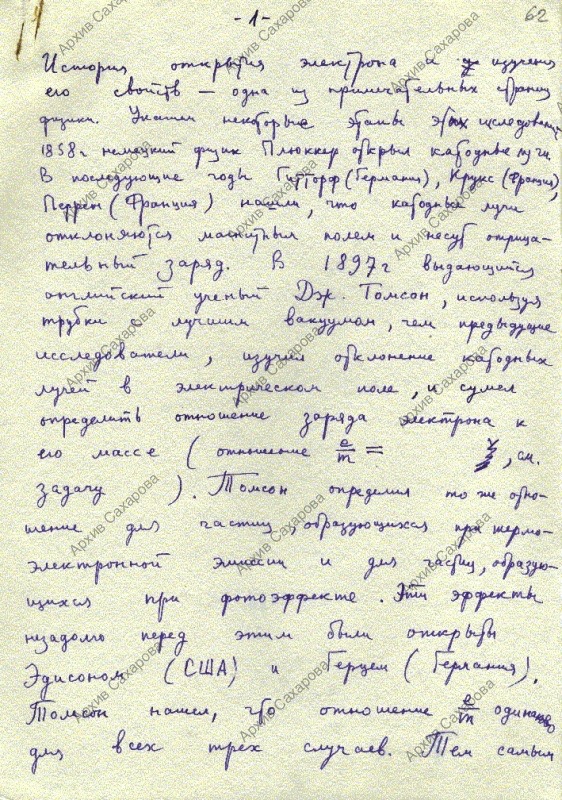 - 1 -
62
История открытия электрона и изучения
его свойств — одна из примечательных страниц
физики. Укажем некоторые этапы этих исследований
1858 г немецкий физик Плюккер открыл катодные лучи.
В последующие годы Гитторф (Германия), Крукс (Франция),
Перрен (Франция) нашли, что катодные лучи
отклоняются магнитным полем и несут отрица-
тельный заряд. В 1897 г выдающийся
английский ученый Дж. Томсон, используя
трубки с лучшим вакуумом, чем предыдущие
исследователи, изучил отклонение катодных
лучей в электрическом поле, и сумел
определить отношение заряда электрона к
его массе (отношение e/m = , см.
задачу ). Томсон определил то же отно-
шение для частиц, образующихся при термо-
электронной эмиссии и для частиц, образую-
щихся при фотоэффекте. Эти эффекты
незадолго перед этим были открыты
Эдисоном (США) и Герцем (Германия).
Томсон нашел, что отношение e/m одинаково
для всех трех случаев. Тем самым
Архив Сахарова